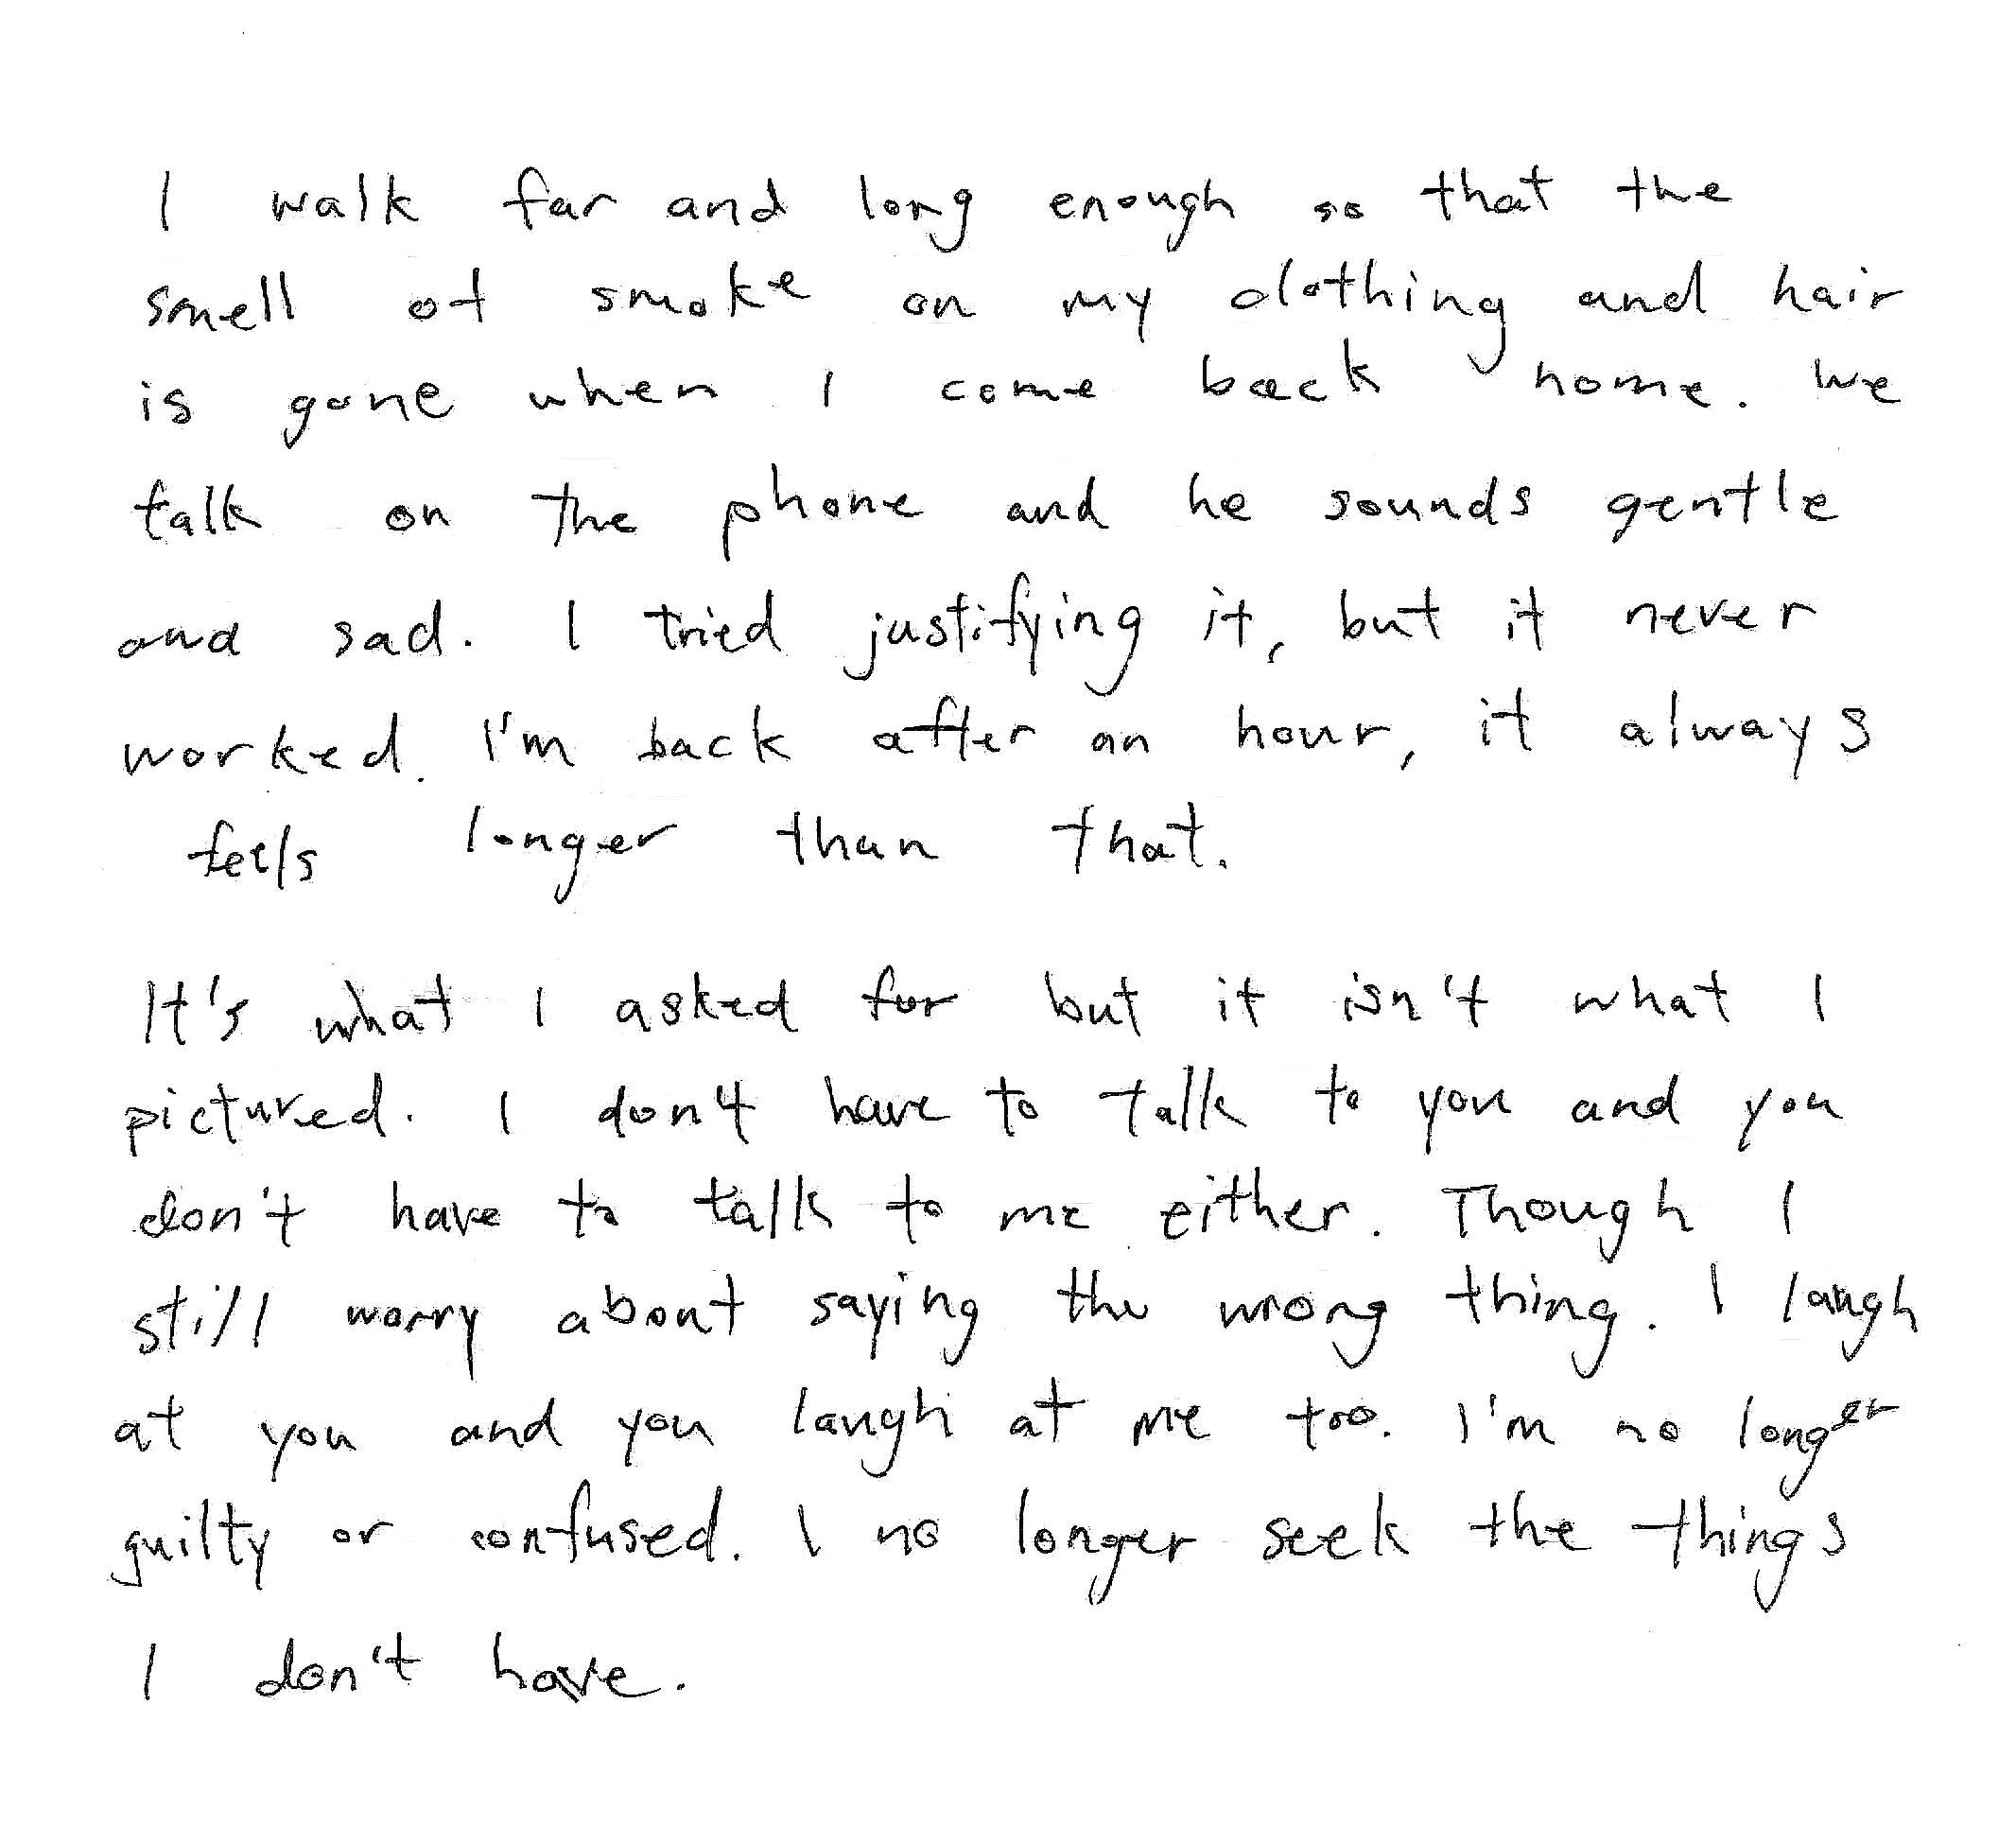 I walk far and long enough so that the
smell of smoke on my clothing and hair
is gone when I come back home. We
talk on the phone and he sounds gentle
and sad. I tried justifying it, but it never
worked. I'm back after an hour, it always
feels longer than that.
It's what I asked for but it isn't what I
pictured. I don't have to talk to you and you
don't have to talk to me either. Though I
still worry about saying the wrong thing. I laugh
at you and you laugh at me too. I'm no longer
guilty or confused. I no longer seek the things
I don't have.